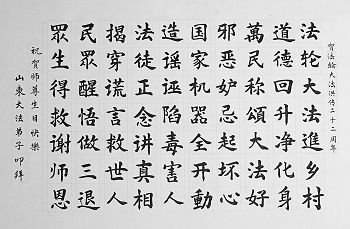 贺法輪大法洪传二十二周年
法轮大法進乡村
道德回升净化身
萬民称頌大法好
邪恶妒忌起坏心
国家机器全开動
造谣诬陷毒害人
法徒正念讲真相
揭穿谎言救世人
民眾醒悟做三退
眾生得救谢师恩
祝贺师尊生日快樂
山東大法弟子 叩拜